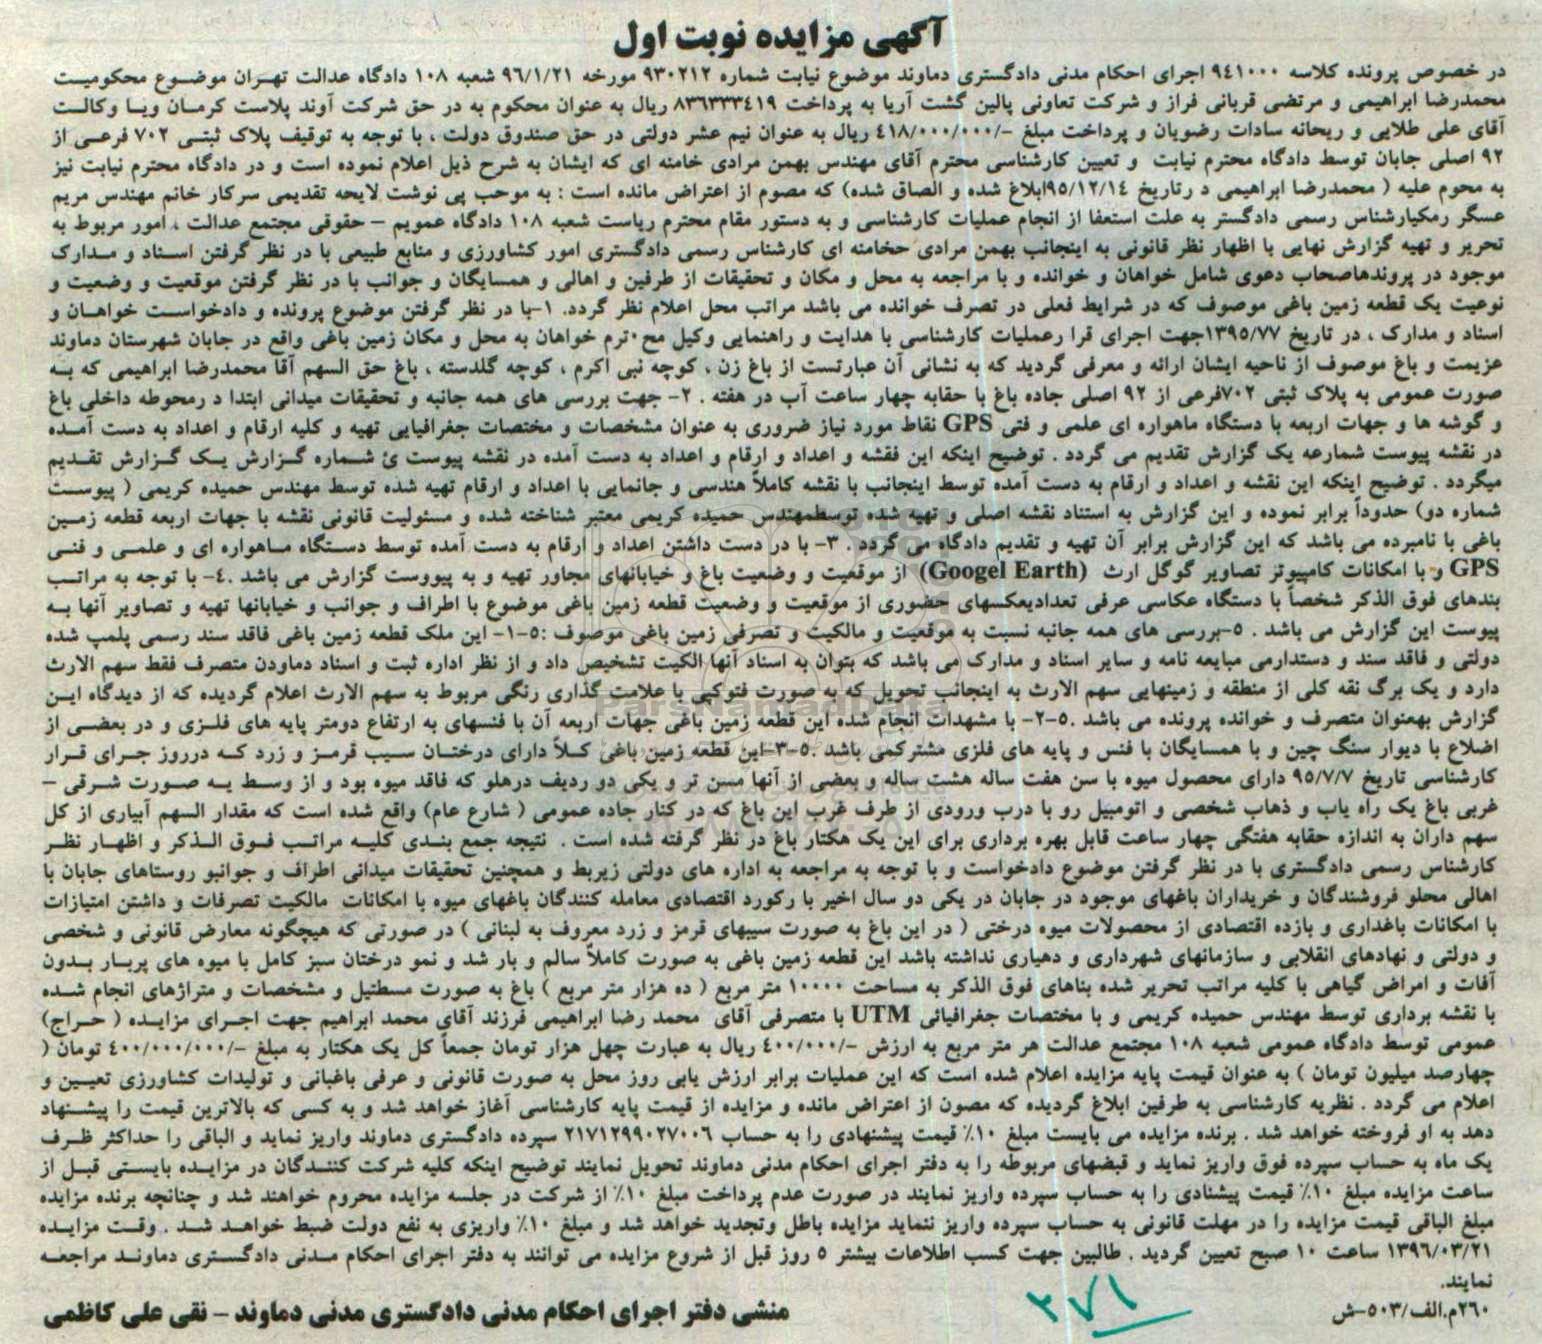 آگهی مزایده نوبت اول
در خصوص پرونده کلاسه ۹٤۱۰۰۰ اجرای احکام مدنی دادگستری دماوند موضوع نیابت شماره ۹۳۰۲۱۲ مورخه ۹٦/۱/۲۱ شعبه ۱۰۸ دادگاه عدالت تهران موضوع محکومیت
محمدرضا ابراهیمی و مرتضی قربانی فراز و شرکت تعاونی پالین گشت آریا به پرداخت ۸۳٦۳۳۳٤۱۹ ریال به عنوان محکوم به در حق شرکت آوند پلاست کرمان وبا وکالت
آقای علی طلایی و ریحانه سادات رضویان و پرداخت مبلغ -/٤۱۸/۰۰۰/۰۰۰ ریال به عنوان نیم عشر دولتی در حق صندوق دولت ، با توجه به توقیف پلاک ثبتی ۷۰۲ فرعی از
۹۲ اصلی جابان توسط دادگاه محترم نیابت و تعیین کارشناسی محترم آقای مهندس بهمن مرادی خامنه ای که ایشان به شرح ذیل اعلام نموده است و در دادگاه محترم نیابت نیز
به محوم علیه ( محمدرضا ابراهیمی د رتاریخ ۹۵/۱۲/۱٤ابلاغ شده و الصاق شده) که مصوم از اعتراض مانده است : به موحب پی نوشت لایحه تقدیمی سرکار خانم مهندس مریم
عسگر رمکیارشناس رسمی دادگستر به علت استعفا از انجام عملیات کارشناسی و به دستور مقام محترم ریاست شعبه ۱۰۸ دادگاه عمویم – حقوقی مجتمع عدالت ، امور مربوط به
تحریر و تهیه گزارش نهایی با اظهار نظر قانونی به اینجانب بهمن مرادی حخامنه ای کارشناس رسمی دادگستری امور کشاورزی و منابع طبیعی با در نظر گرفتن اسناد و مدارک
موجود در پروندهاصحاب دعوی شامل خواهان و خوانده و با مراجعه به محل و مکان و تحقیقات از طرفین و اهالی و همسایگان و جوانب با در نظر گرفتن موقعیت و وضعیت و
نوعیت یک قطعه زمین باغی موصوف که در شرایط فعلی در تصرف خوانده می باشد مراتب محل اعلام نظر گردد. ۱-با در نظر گرفتن موضوع پرونده و دادخواست خواهان و
اسناد و مدارک ، در تاریخ ۱۳۹۵/۷۷جهت اجرای قرا رعملیات کارشناسی با هدایت و راهنمایی وکیل مح۰ترم خواهان به محل و مکان زمین باغی واقع در جابان شهرستان دماوند
عزیمت و باغ موصوف از ناحیه ایشان ارائه و معرفی گردید که به نشانی آن عبارتست از باغ زن ، کوچه نبی اکرم ، کوچه گلدسته ، باغ حق السهم آقا محمدرضا ابراهیمی که به
صورت عمومی به پلاک ثبتی ۷۰۲فرعی از ۹۲ اصلی جاده باغ با حقابه چهار ساعت آب در هفته . ۲- جهت بررسی های همه جانبه و تحقیقات میدانی ابتدا د رمحوطه داخلی باغ
و گوشه ها و جهات اربعه با دستگاه ماهواره ای علمی و فتی GPS نقاط مورد نیاز ضروری به عنوان مشخصات و مختصات جغرافیایی تهیه و کلیه ارقام و اعداد به دست آمده
در نقشه پیوست شمارعه یک گزارش تقدیم می گردد . توضیح اینکه این فقشه و اعداد و ارقام و اعداد به دست آمده در نقشه پیوست ئ شماره گزارش یک گزارش تقدیم
میگردد . توضیح اینکه این نقشه و اعداد و ارقام به دست آمده توسط اینجانب با نقشه کاملاً هندسی و جانمایی با اعداد و ارقام تهیه شده توسط مهندس حمیده کریمی ( پیوست
شماره دو) حدوداً برابر نموده و این گزارش به استناد نقشه اصلی و تهیه شده توسطمهندس حمیده کریمی معتبر شناخته شده و مسئولیت قانونی نقشه با جهات اربعه قطعه زمین
باغی با نامبرده می باشد که این گزارش برابر آن تهیه و تقدیم دادگاه می گردد . ۳- با در دست داشتن اعداد و ارقام به دست آمده توسط دستگاه ماهواره ای و علمی و فنی
GPS و با امکانات کامپیوتز تصاویر گوگل ارث (Googel Earth) از موقعیت و وضعیت باغ و خیابانهای مجاور تهیه و به پیووست گزارش می باشد .٤- با توجه به مراتب
بندهای فوق الذکر شخصاً با دستگاه عکاسی عرفی تعدادیعکسهای حضوری از موقعیت و وضعیت قطعه زمین باغی موضوع با اطراف و جوانب و خیابانها تهیه و تصاویر آنها به
پیوست این گزارش می باشد . ۵-بررسی های همه جانبه نسبت به موقعیت و مالکیت و تصرفی زمین باغی موصوف :۵-۱- این ملک قطعه زمین باغی فاقد سند رسمی پلمپ شده
دولتی و فاقد سند و دستدارمی مبایعه نامه و سایر اسناد و مدارک می باشد که بتوان به اسناد آنها الکیت تشخیص داد و از نظر اداره ثبت و اسناد دماودن متصرف فقط سهم الارث
دارد و یک برگ نقه کلی از منطقه و زمینهایی سهم الارث به اینجانب تحویل که به صورت فتوکپی با علامت گذاری رنگی مربوط به سهم الارث اعلام گردیده که از دیدگاه این
گزارش بهعنوان متصرف و خوانده پرونده می باشد .۵-۲- با مشهدات انجام شده این قطعه زمین باغی جهات اربعه آن با فنسهای به ارتفاع دومتر پایه های فلزی و در بعضی از
اضلاع با دیوار سنگ چین و با همسایگان با فنس و پایه های فلزی مشترکمی باشد .۵-۳-این قطعه زمین باغی کلاً دارای درختان سیب قرمز و زرد که درروز جرای قرار
کارشناسی تاریخ ۹۵/۷/۷ دارای محصول میوه با سن هفت ساله هشت ساله و بعضی از آنها مسن تر و یکی دو ردیف درهلو که فاقد میوه بود و از وسط یه صورت شرقی –
غربی باغ یک راه یاب و ذهاب شخصی و اتومبیل رو با درب ورودی از طرف غرب این باغ که در کنار جاده عمومی ( شارع عام) واقع شده است که مقدار السهم آبیاری از کل
سهم داران به اندازه حقابه هفتگی چهار ساعت قابل بهره برداری برای این یک هکتار باغ در نظر گرفته شده است . نتیجه جمع بندی کلیه مراتب فوق الذکر و اظهار نظر
کارشناس رسمی دادگستری با در نظر گرفتن موضوع دادخواست و با توجه به مراجعه به اداره های دولتی زیربط و همچنین تحقیقات میدانی اطراف و جوانبو روستاهای جابان با
اهالی محلو فروشندگان و خریداران باغهای موجود در جابان در یکی دو سال اخیر با رکورد اقتصادی معامله کنندگان باغهای میوه با امکانات مالکیت تصرفات و داشتن امتیازات
با امکانات باغداری و بازده اقتصادی از محصولات میوه درختی ( در این باغ به صورت سیبهای قرمز و زرد معروف به لبنانی ) در صورتی که هیچگونه معارض قانونی و شخصی
و دولتی و نهادهای انقلابی و سازمانهای شهرداری و دهیاری نداشته باشد این قطعه زمین باغی به صورت کاملاً سالم و بار شد و نمو درختان سبز کامل با میوه های پربار بدون
آفات و امراض گیاهی با کلیه مراتب تحریر شده بناهای فوق الذکر به مساحت ۱۰۰۰۰ متر مربع ( ده هزار متر مربع ) باغ به صورت مسطتیل و مشخصات و متراژهای انجام شده
با نقشه برداری توسط مهندس حمیده کریمی و با مختصات جغرافیائی UTM با متصرفی آقای محمد رضا ابراهیمی فرزند آقای محمد ابراهیم جهت اجرای مزایده ( حراج)
عمومی توسط دادگاه عمومی شعبه ۱۰۸ مجتمع عدالت هر متر مربع به ارزش -/٤۰۰/۰۰۰ ریال به عبارت چهل هزار تومان جمعاً کل یک هکتار به مبلغ -/٤۰۰/۰۰۰/۰۰۰ تومان (
چهارصد میلیون تومان ) به عنوان قیمت پایه مزایده اعلام شده است که این عملیات برابر ارزش یابی روز محل به صورت قانونی و عرفی باغبانی و تولیدات کشاورزی تعیین و
اعلام می گردد . نظریه کارشناسی به طرفین ابلاغ گردیده که مصون از اعتراض مانده و مزایده از قیمت پایه کارشناسی آغاز خواهد شد و به کسی که بالاترین قیمت را پیشنهاد
دهد به او فروخته خواهد شد . برنده مزایده می بایست مبلغ ۱۰٪ قیمت پیشنهادی را به حساب ۲۱۷۱۲۹۹۰۲۷۰۰٦ سپرده دادگستری دماوند واریز نماید و الباقی را حداکثر ظرف
یک ماه به حساب سپرده فوق واریز نماید و قبضهای مربوطه را به دفتر اجرای احکام مدنی دماوند تحویل نمایند توضیح اینکه کلیه شرکت کنندگان در مزایده بایستی قبل از
ساعت مزایده مبلغ ۱۰٪ قیمت پیشنادی را به حساب سپرده واریز نمایند در صورت عدم پرداخت مبلغ ۱۰٪ از شرکت در جلسه مزایده محروم خواهند شد و چنانچه برنده مزایده
مبلغ الباقی قیمت مزایده را در مهلت قانونی به حساب سپرده واریز ننماید مزایده باطل وتجدید خواهد شد و مبلغ ۱۰٪ واریزی به نفع دولت ضبط خواهد شد . وقت مزایده
۱۳۹٦/۰۳/۲۱ ساعت ۱۰ صبح تعیین گردید . طالبین جهت کسب اطلاعات بیشتر ۵ روز قبل از شروع مزایده می توانند به دفتر اجرای احکام مدنی دادگستری دماوند مراجعه
نمایند.
۲٦۰م.الف/۵۰۳-ش
منشی دفتر اجرای احکام مدنی دادگستری مدنی دماوند – نقی علی کاظمی
۲۷۱
ParsNamadData